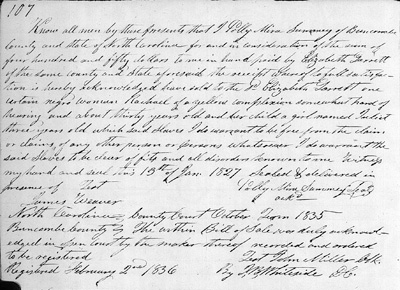 107
Know all men by these presents that I Polly Mira Summey of Buncombe
County and State of North Carolina for and in consideration of the sum of
four hundred and fifty dollars to me in hand paid by Elizabeth Garrett
of the same county and State aforesaid the receipt whereof to full satisfac-
tion is hereby acknowledged have sold to the sd Elizabeth Garrett one
certain negro woman Rachael of yellow complexion somewhat hard of
hearing and about thirty years old and her child a girl named Juliet
three years old which said slaves I do warrant to be free from the claim
or claims of any other person or persons whatsoever I do warrant the
said slaves to be clear of fits and all disorders known to me Witness
my hand and seal this 13th of Jan 1827 sealed & delivered in
presence of Test Polly Mira Summey Seal
James Weaver ackd
North Carolina County Court October Term 1835
Buncombe County The within Bill of Sale was duly acknowl-
edged in open Court by the maker thereof recorded and ordered
to be registered Test John Miller Clk
Registered February 2nd 1836 By Whiteside D.C.